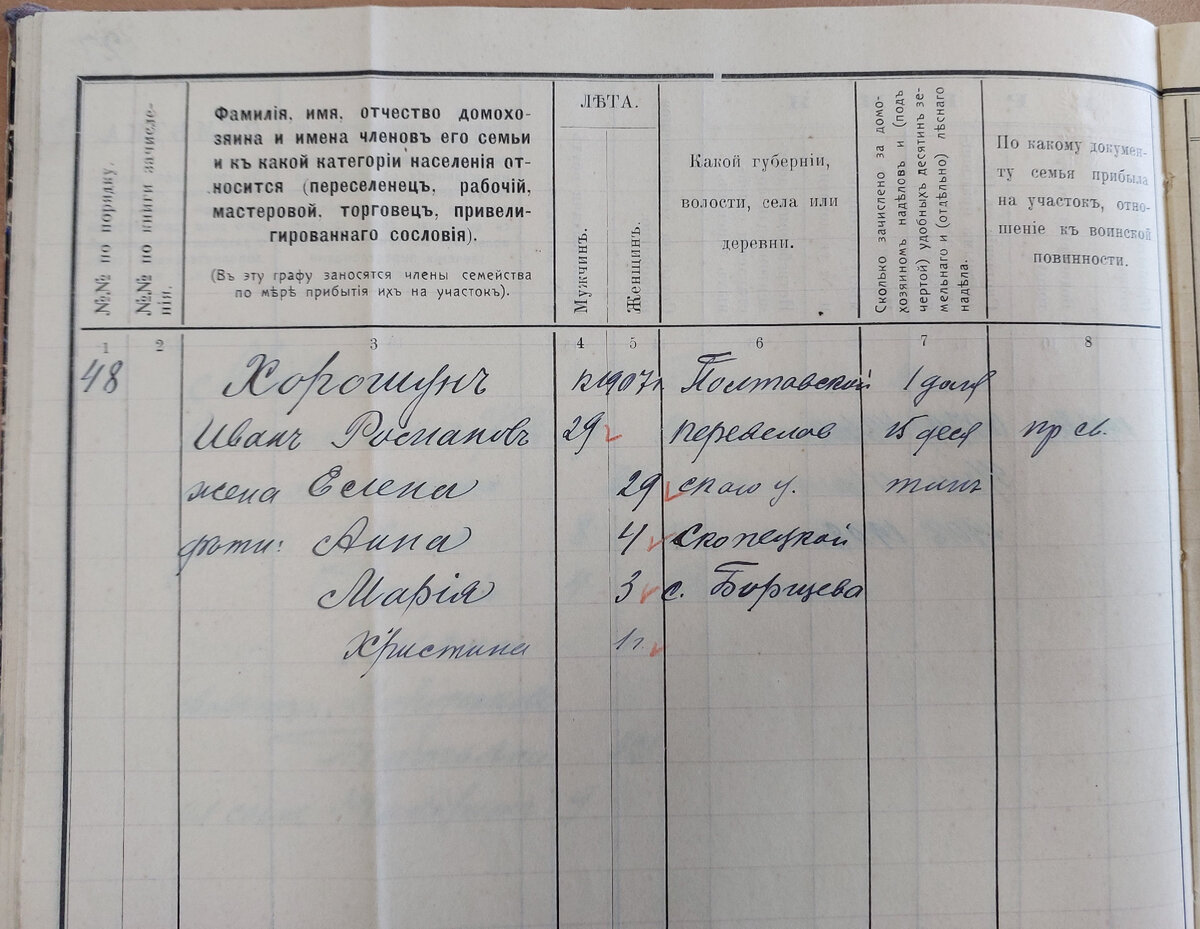 №№ по порядку.
№№ по книги зачисле-
нія.
Фамилія, имя, отчество домохо-
зяина и имена членовъ его семьи
и къ какой категоріи населенія от-
носится (переселенецъ, рабочій,
мастеровой, торговецъ, привели-
гированнаго сословія).
(Въ эту графу заносятся члены семейства
по мѣрѣ прибытія ихъ на участокъ).
ЛѢТА.
Мужчинъ.
Женщинъ.
Какой губерніи,
волости, села или
деревни.
Сколько зачислено за домо-
хозяиномъ надѣловъ и (подъ
чертой) удобныхъ десятинъ зе-
мельнаго и (отдѣльно) лѣснаго
надѣла.
По какому докумен-
ту семья прибыла
на участокъ, отно-
шеніе къ воинской
повинности.
1 2 3 4 5 6 7 8
48 Хорошунъ 1907г Полтавской 1 доля
Иванъ 29 Переяслав 15 деся пр св.
жена Елена 29 скаго у. тинъ
Анна 4 Скопецкой
Марія 3 с. Борщева
Христина 1 г.